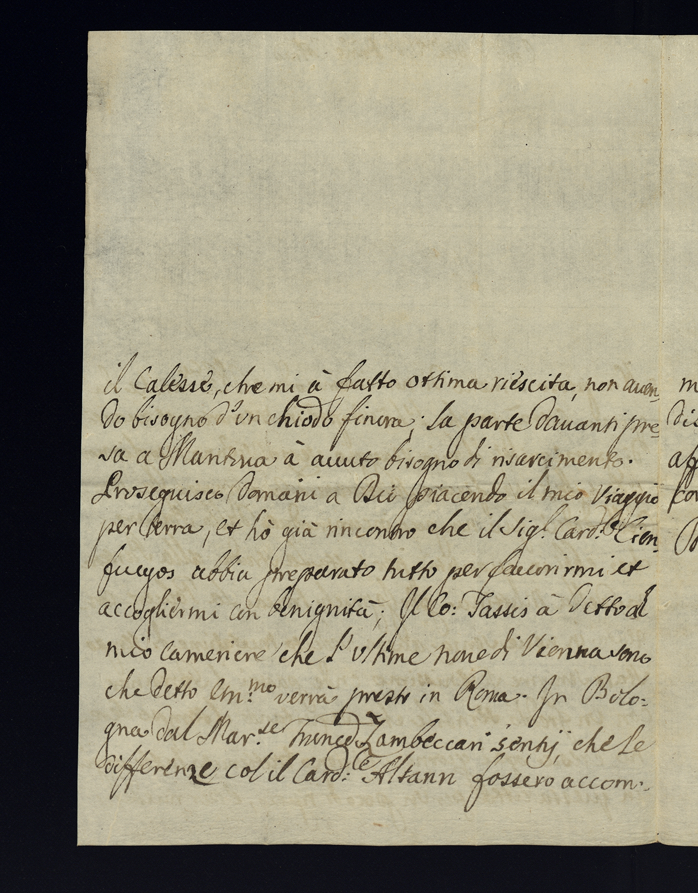 il Calesse, che mi à fatto ottima riescita, non auen=
do bisogno d'un chiodo finora; la parte dauanti pre=
sa a Mantoua à auuto bisogno di risarcimento.
Proseguisco domani a Dio piacendo il mio Viaggio
per terra, et hò già rincontro che il Sig.r Card.le Cien=
fuegos abbia preparato tutto per fauorirmi et
accogliermi con benignità; Il Co: Tassis à detto al
mio cameriere che l'ultime noue di Vienna sono
che detto Em.mo verrà presto in Roma. In Bolo=
gna dal Mar.se Zambeccari sentij, che le
differenze col il Card.le Altann fossero accom=
m
dis
aff